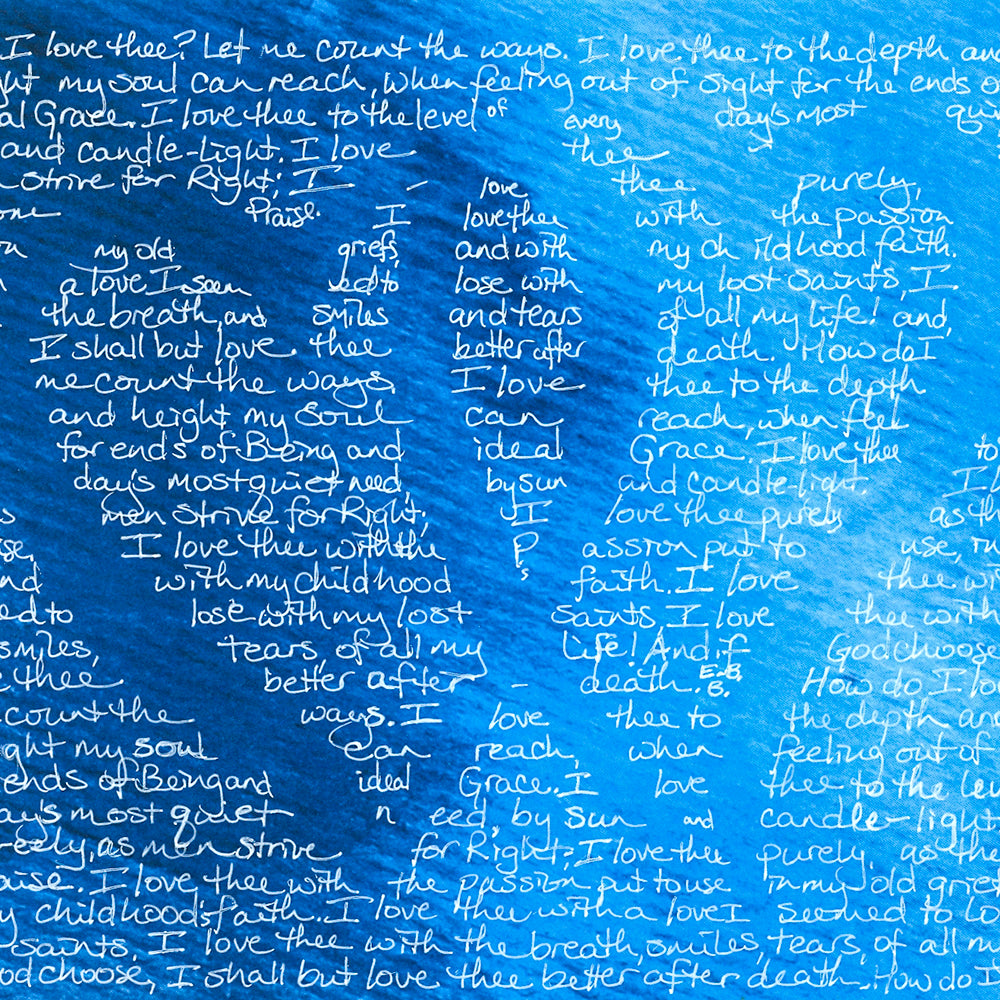 I love thee? Let me count the ways. I love thee to the depth an
ght my soul can reach, when feeling out of sight for the ends o
al Grace. I love thee to the level of every day's most qui
and candle-light. I love thee
strive for Right; I - love thee purely,
one Praise. I love thee with the passion
n my old griefs, and with my ch ildhood faith.
a love I seem ed to lose with my lost saints, I.
the breath, and smiles and tears of all my life! and,
I shall but love thee better after death. How do I
me count the ways. I love thee to the depth
and height my soul can reach, when feel
for ends of Being and ideal Grace. I love thee to
day's most quiet need, by sun and candle-light. I l
s men strive for Right; I love thee purely as th
se, I love thee with the P assion put to use, in
nd with my childhood s faith. I love thee wi
ed to lose with my lost saints, I love thee with
smiles, tears, of all my life! And if God choose
e thee better after - death. E.B.B. How do I lo
count the ways. I love thee to the depth an
ght my soul can reach, when feeling out of
ends of Being and ideal Grace. I love thee to the lev
ay's most quiet n eed, by sun and candle-light
reely, as men strive for Right; I love thee purely, as the
aise. I love thee with the passion put to use in my old grief
y childhood's faith. I love thee with a love I seemed to lo
saints. I love thee with the breath, smiles, tears, of all m
od choose, I shall but love thee better after death. How do I